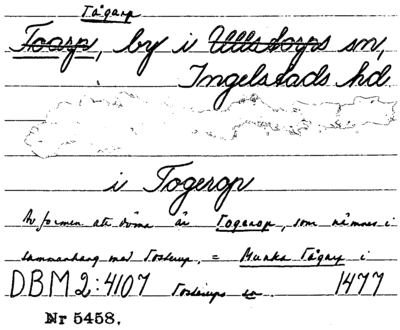 Tågarp
Toarp, by i Ullstorps sn,
Ingelstads hd
i Togerop
Av formen att döma är Togarop, som nämnes i
sammanhang med Tosterup, = Munka Tågarp i
DBM 2:4107 Tosterups sn. 1477
Nr 5458.